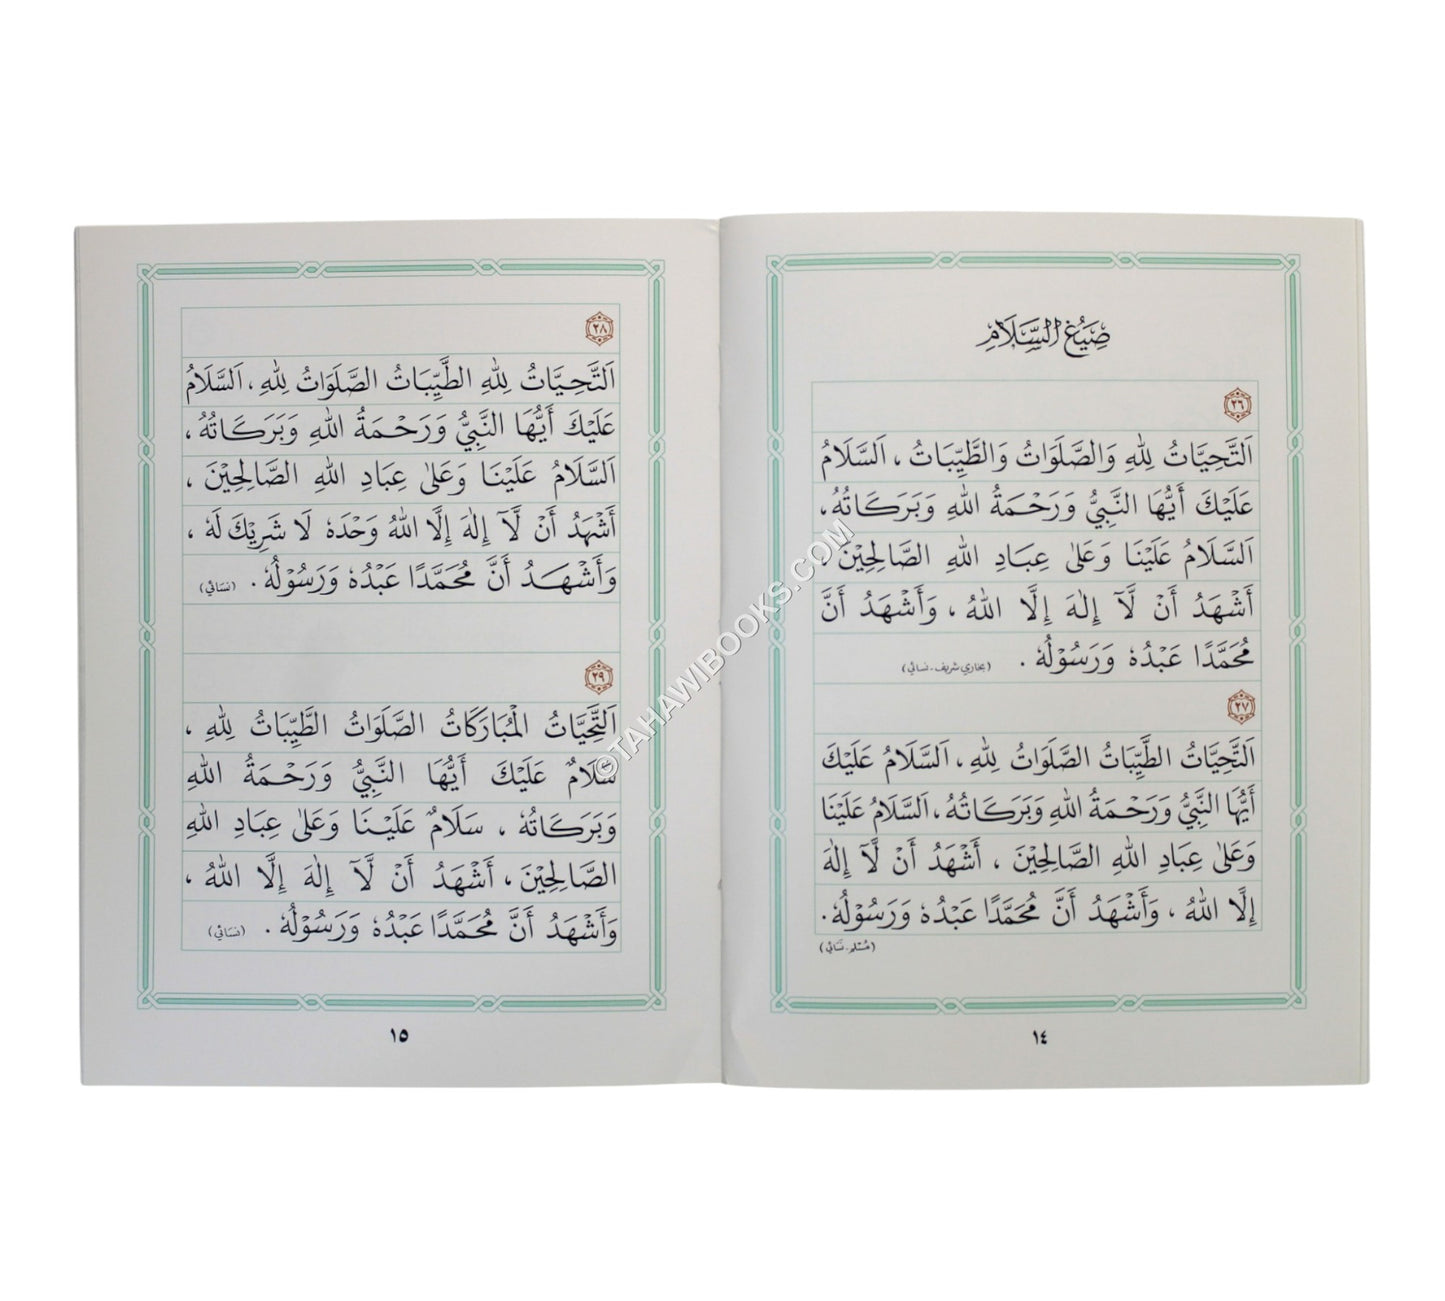 صِيَغُ السَّلَامِ
٢٦
اَلتَّحِيَّاتُ لِلّٰهِ وَالصَّلَوَاتُ وَالطَّيِّبَاتُ ، اَلسَّلَامُ
عَلَيْكَ أَيُّهَا النَّبِيُّ وَرَحْمَةُ اللهِ وَبَرَكَاتُهُ،
اَلسَّلَامُ عَلَيْنَا وَعَلىٰ عِبَادِ اللهِ الصَّالِحِيْنَ ،
أَشْهَدُ أَنْ لَّآ إِلٰهَ إِلَّا اللهُ ، وَأَشْهَدُ أَنَّ
مُحَمَّدًا عَبْدُهٗ وَرَسُوْلُهٗ . (بخاري شريف - نسائي)
٢٧
اَلتَّحِيَّاتُ الطَّيِّبَاتُ الصَّلَوَاتُ لِلّٰهِ، اَلسَّلَامُ عَلَيْكَ
أَيُّهَا النَّبِيُّ وَرَحْمَةُ اللهِ وَبَرَكَاتُهٗ، اَلسَّلَامُ عَلَيْنَا
وَعَلىٰ عِبَادِ اللهِ الصَّالِحِيْنَ ، أَشْهَدُ أَنْ لَّآ إِلٰهَ
إِلَّا اللهُ ، وَأَشْهَدُ أَنَّ مُحَمَّدًا عَبْدُهٗ وَرَسُوْلُهٗ .
(مُسْلم - نَسَائي)
١٤
٢٨
اَلتَّحِيَّاتُ لِلّٰهِ الطَّيِّبَاتُ الصَّلَوَاتُ لِلّٰهِ، اَلسَّلَامُ
عَلَيْكَ أَيُّهَا النَّبِيُّ وَرَحْمَةُ اللهِ وَبَرَكَاتُهٗ ،
اَلسَّلَامُ عَلَيْنَا وَعَلىٰ عِبَادِ اللهِ الصَّالِحِيْنَ ،
أَشْهَدُ أَنْ لَّآ إِلٰهَ إِلَّا اللهُ وَحْدَهٗ لَا شَرِيْكَ لَهٗ ،
وَأَشْهَدُ أَنَّ مُحَمَّدًا عَبْدُهٗ وَرَسُوْلُهٗ . (نسَائي)
٢٩
اَلتَّحِيَّاتُ الْمُبَارَكَاتُ الصَّلَوَاتُ الطَّيِّبَاتُ لِلّٰهِ ،
سَلَامٌ عَلَيْكَ أَيُّهَا النَّبِيُّ وَرَحْمَةُ اللهِ
وَبَرَكَاتُهٗ ، سَلَامٌ عَلَيْنَا وَعَلىٰ عِبَادِ اللهِ
الصَّالِحِيْنَ ، أَشْهَدُ أَنْ لَّآ إِلٰهَ إِلَّا اللهُ ،
وَأَشْهَدُ أَنَّ مُحَمَّدًا عَبْدُهٗ وَرَسُوْلُهٗ . (نسَائي)
١٥
©TAHAWIBOOKS.COM